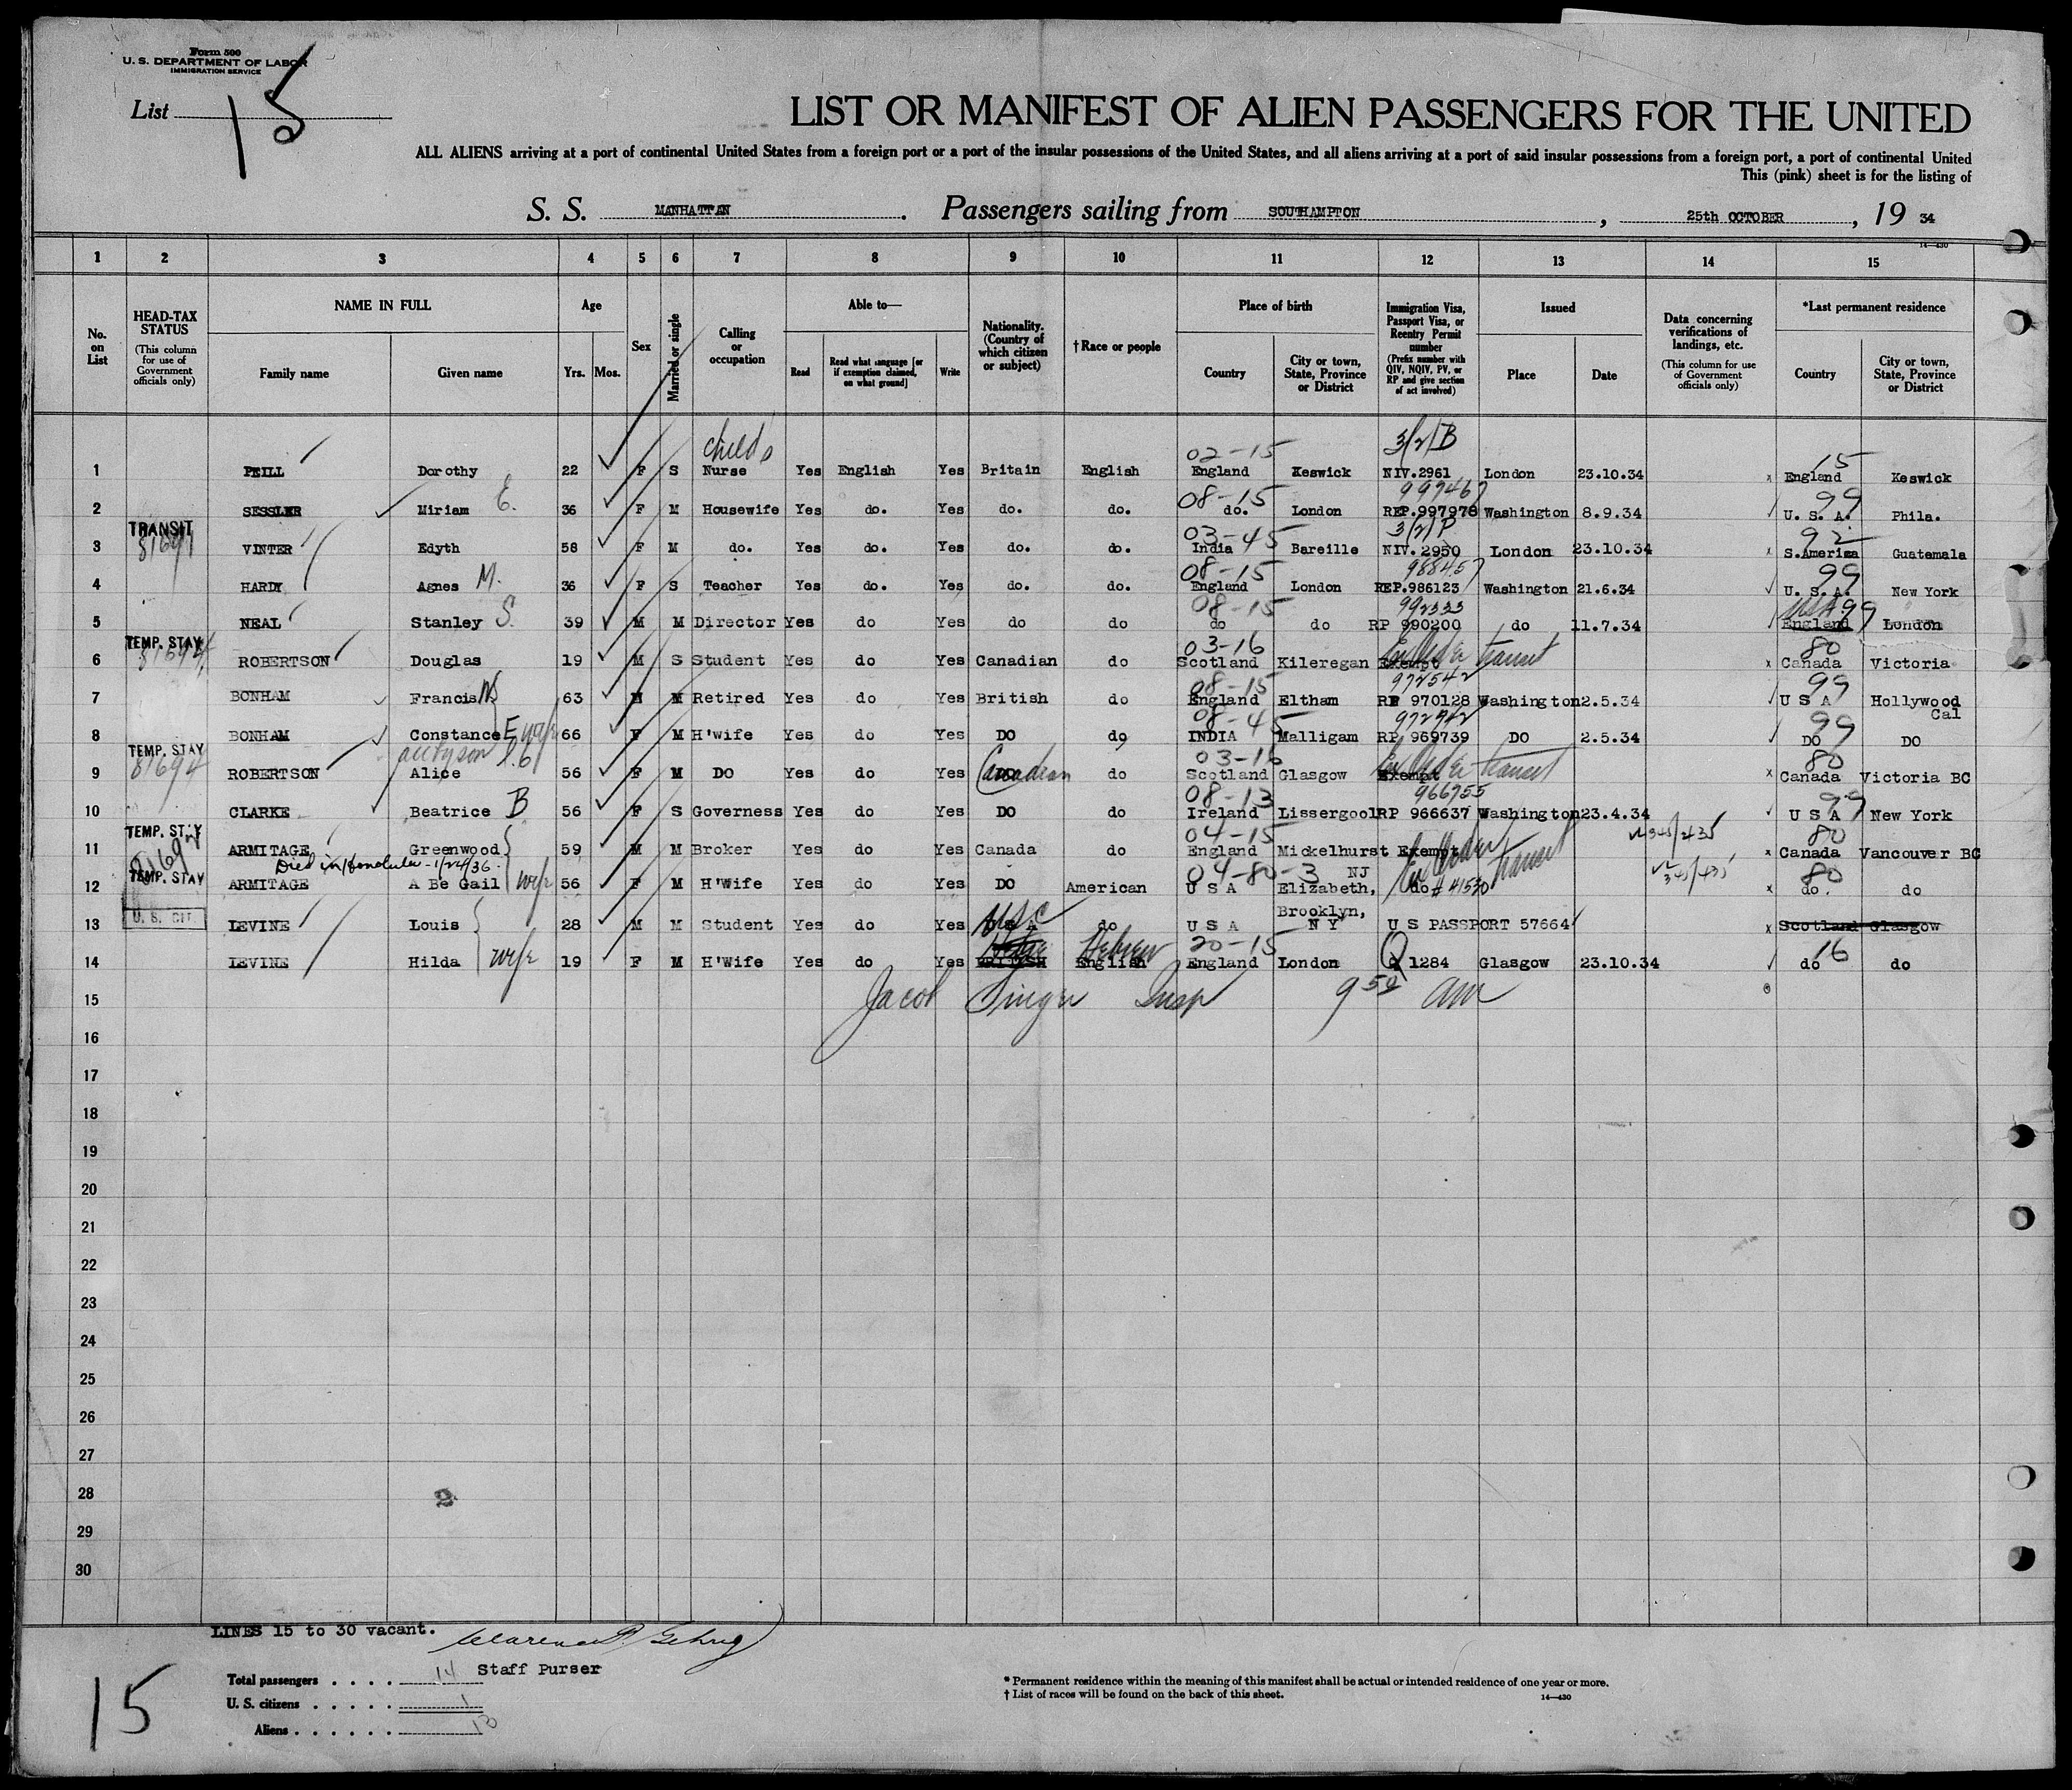 Form 500
U. S. DEPARTMENT OF LABOR
IMMIGRATION SERVICE
List 15
LIST OR MANIFEST OF ALIEN PASSENGERS FOR THE UNITED
ALL ALIENS arriving at a port of continental United States from a foreign port or a port of the insular possessions of the United States, and all aliens arriving at a port of said insular possessions from a foreign port, a port of continental United
This (pink) sheet is for the listing of
S. S. MANHATTAN. Passengers sailing from SOUTHAMPTON, 25th OCTOBER, 19 34
14—430
1 2 3 4 5 6 7 8 9 10 11 12 13 14 15
No. on List
HEAD-TAX STATUS
(This column for use of Government officials only)
NAME IN FULL
Family name
Given name
Age
Yrs. Mos.
Sex
Married or single
Calling or occupation
Able to—
Read
Read what language [or if exemption claimed, on what ground]
Write
Nationality. (Country of which citizen or subject)
†Race or people
Place of birth
Country
City or town, State, Province or District
Immigration Visa, Passport Visa, or Reentry Permit number
(Prefix number with QIV, NQIV, PV, or RP and give section of act involved)
Issued
Place
Date
Data concerning verifications of landings, etc.
(This column for use of Government officials only)
*Last permanent residence
Country
City or town, State, Province or District
child's 02-15 3/2/B 15
1 PEILL Dorothy 22 F S Nurse Yes English Yes Britain English England Keswick NIV.2961 London 23.10.34 x England Keswick
08-15 997467 99
2 SESSLER Miriam E. 36 F M Housewife Yes do. Yes do. do. do. London REP.997978 Washington 8.9.34 U. S. A. Phila.
TRANSIT 81691 03-45 3/2/P 92
3 VINTER Edyth 58 F M do. Yes do. Yes do. do. India Bareille NIV.2950 London 23.10.34 x S.America Guatemala
08-15 988457 99
4 HARDY Agnes M. 36 F S Teacher Yes do. Yes do. do. England London REP.986123 Washington 21.6.34 U. S. A. New York
08-15 992333 USA 99
5 NEAL Stanley S. 39 M M Director Yes do Yes do do do do RP 990200 do 11.7.34 England London
TEMP. STAY 81694 03-16 transit 80
6 ROBERTSON Douglas 19 M S Student Yes do Yes Canadian do Scotland Kileregan Exempt x Canada Victoria
08-15 972542 99
7 BONHAM Francis 63 M M Retired Yes do Yes British do England Eltham RP 970128 Washington 2.5.34 U S A Hollywood Cal
08-45 99
8 BONHAM Constance E wife 66 F M H'wife Yes do Yes DO do INDIA Malligam RP 969739 DO 2.5.34 DO DO
TEMP. STAY 81694 03-16 transit 80
9 ROBERTSON Alice 56 F M DO Yes do Yes Canadian do Scotland Glasgow Exempt x Canada Victoria BC
08-13 966755 99
10 CLARKE Beatrice B 56 F S Governess Yes do Yes DO do Ireland Lissergool RP 966637 Washington 23.4.34 U S A New York
TEMP. STAY 81692 04-15 transit 80
11 ARMITAGE Greenwood 59 M M Broker Yes do Yes Canada do England Mickelhurst Exempt x Canada Vancouver BC
Died in Honolulu - 1/24/36. 04-80-3 80
TEMP. STAY
12 ARMITAGE A Be Gail wife 56 F M H'Wife Yes do Yes DO American U S A Elizabeth, NJ do # 41530 x do. do
U. S. CIT. USC
13 LEVINE Louis 28 M M Student Yes do Yes U S A do U S A Brooklyn, N Y U S PASSPORT 57664 x Scotland Glasgow
Hebrew 20-15 16
14 LEVINE Hilda wife 19 F M H'Wife Yes do Yes BRITISH English England London Q 1284 Glasgow 23.10.34 do do
15 Jacob Singer Insp 9 50 am
16
17
18
19
20
21
22
23
24
25
26
27
28
29
30
LINES 15 to 30 vacant.
Clarence Gehrig
Staff Purser
15
Total passengers . . . . 14
U. S. citizens . . . . . 1
Aliens . . . . . . 13
* Permanent residence within the meaning of this manifest shall be actual or intended residence of one year or more.
† List of races will be found on the back of this sheet.
14—430